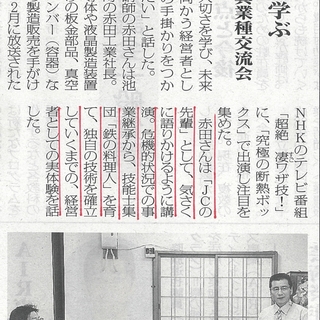 学ぶ
業種交流会
切さを学び、未来
向かう経営者とし
の手掛かりをつか
たい」と話した。
師の赤田さんは池
の赤田工業社長。
体や液晶製造装置
の板金部品、真空
ンバー（容器）な
製造販売を手がけ
2月に放送された
NHKのテレビ番組
「超絶　凄ワザ技！」
に、「究極の断熱ボッ
クス」で出演し注目を
集めた。
赤田さんは「JCの
先輩」として、気さく
に語りかけるように講
演。危機的状況での事
業継承から、技能士集
団「鉄の料理人」を育
て、独自の技術を確立
していくまでの、経営
者としての実体験を話
した。